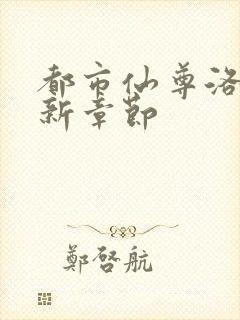 都市仙尊洛
新章节
鄭啓航